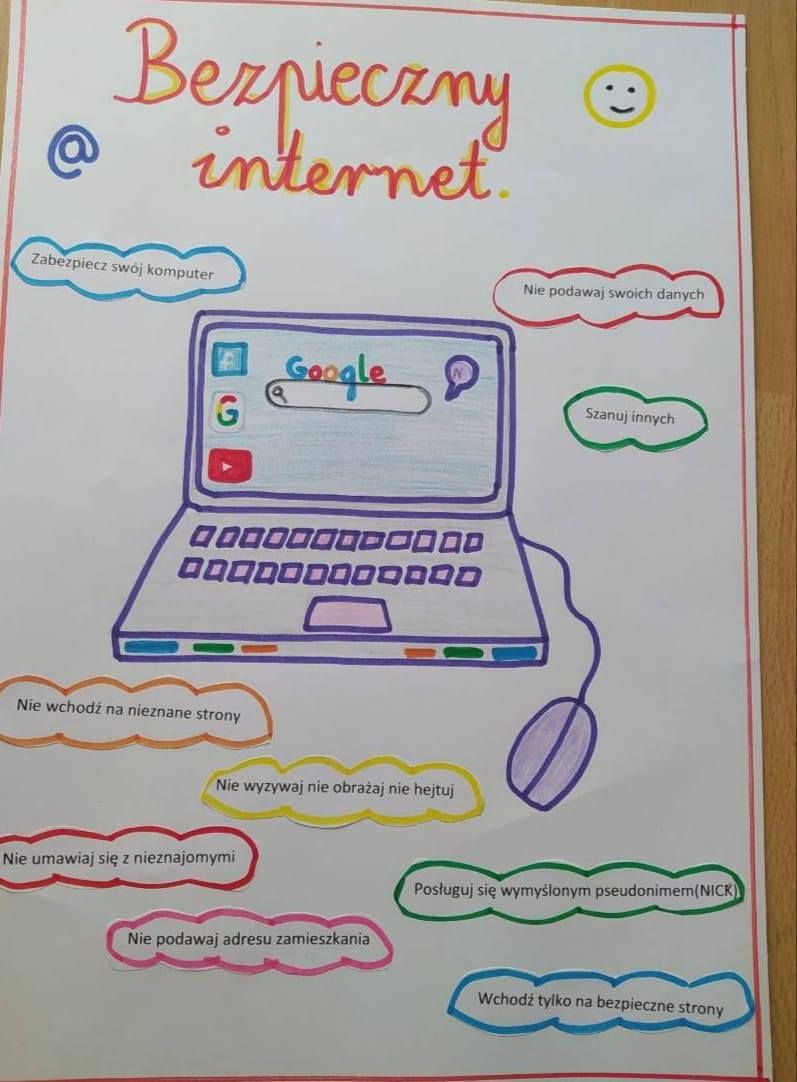 Bezpieczny
internet.
@
Zabezpiecz swój komputer
Nie podawaj swoich danych
Google
N
G
Szanuj innych
Nie wchodź na nieznane strony
Nie wyzywaj nie obrażaj nie hejtuj
Nie umawiaj się z nieznajomymi
Posługuj się wymyślonym pseudonimem(NICK)
Nie podawaj adresu zamieszkania
Wchodź tylko na bezpieczne strony